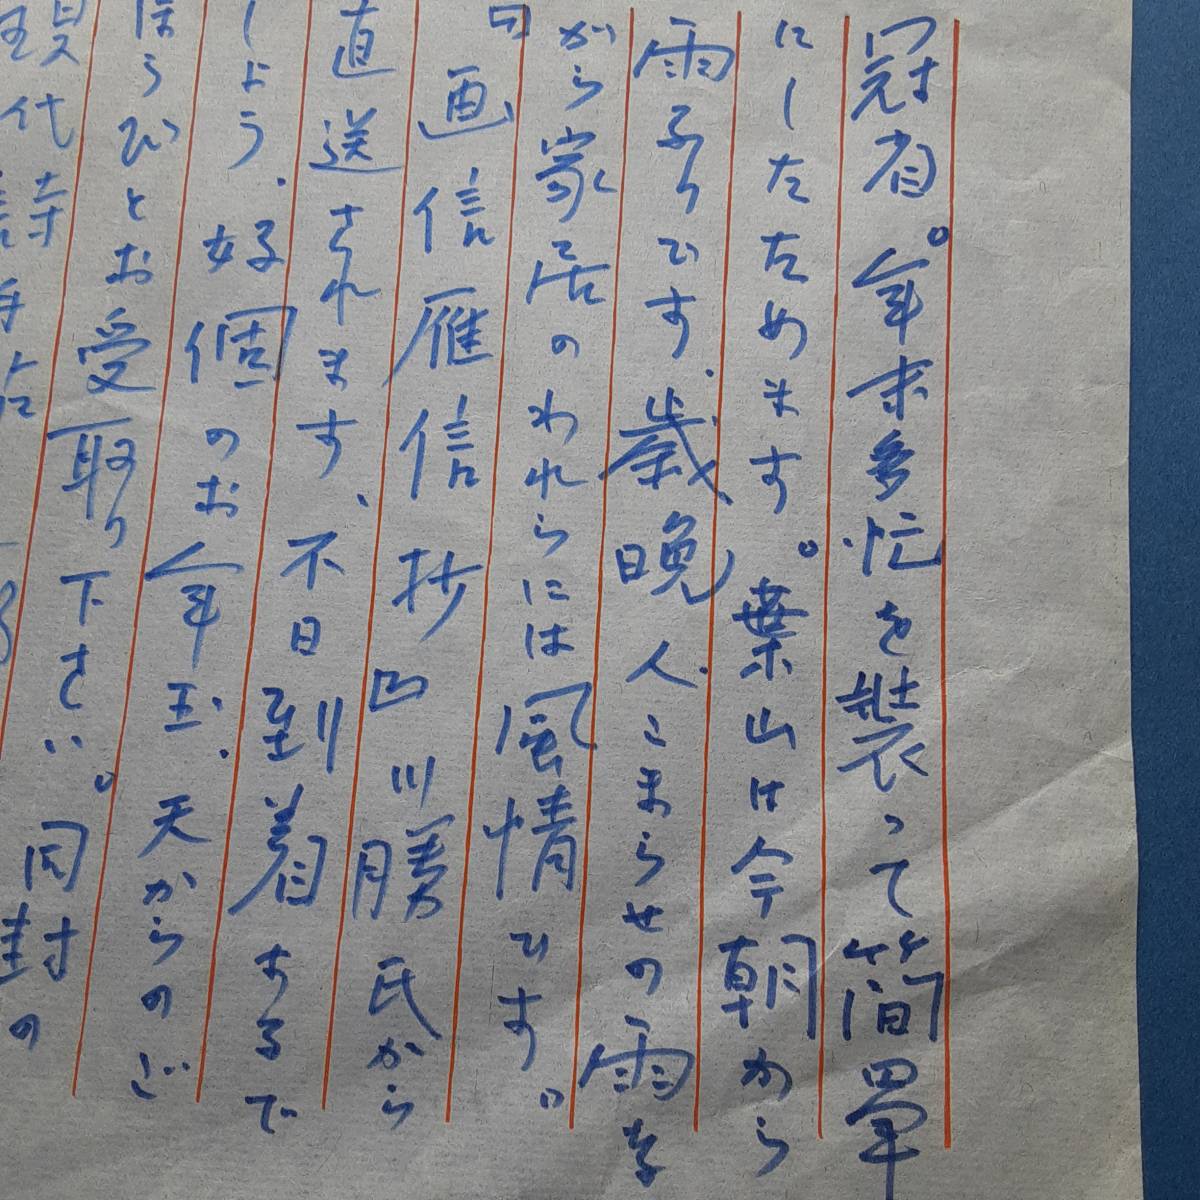 冠省。年末多忙を装って簡単
にしたためます。葉山は今朝から
雨ふりです、歳晩、人こまらせの雨な
がら家居のわれらには風情です。
画信雁信抄 凹川勝氏から
直送されます、不日到着するで
しょう、好個のお年玉、天からのご
ほうびとお受取り下さい。同封の
現代詩